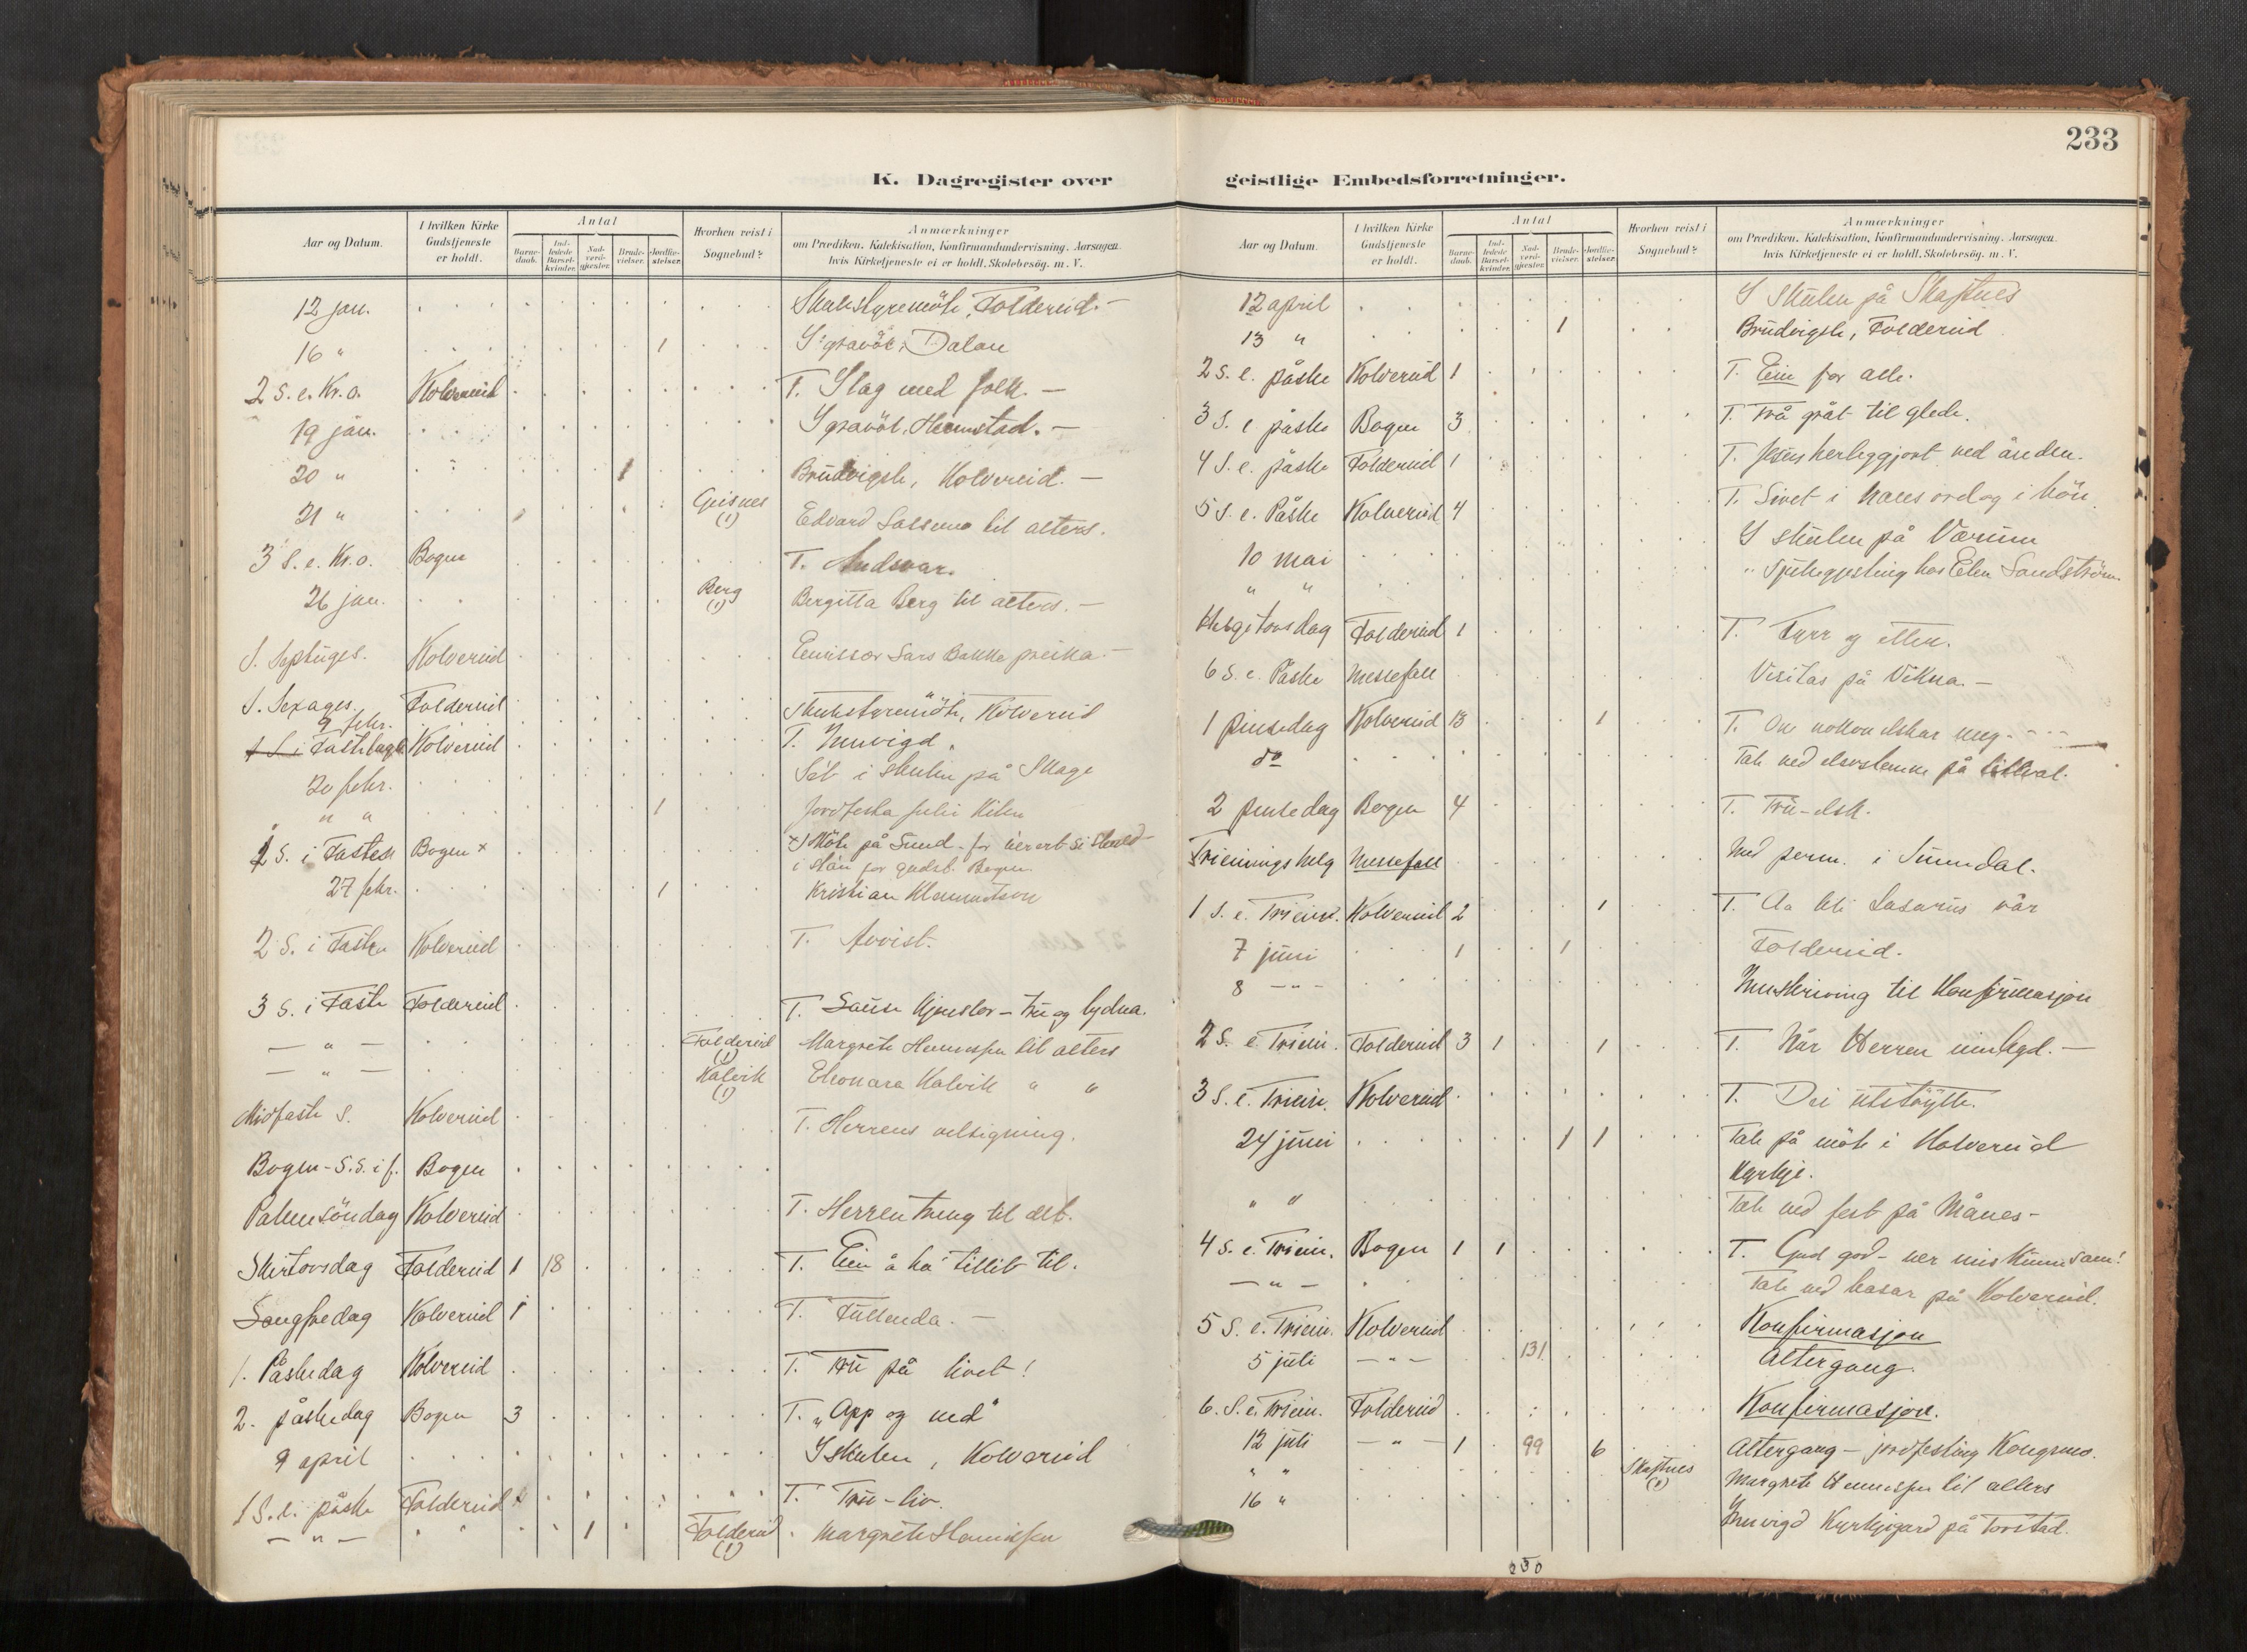 233
K. Dagregister over
Aar og Datum.
I hvilken Kirke Gudstjeneste er holdt.
Antal
Barne-daab.
Ind-ledede Barsel-kvinder.
Nad-verd-gjester.
Brude-vielser.
Jordfæ-stelser.
Hvorhen reist i Sognebud?
Anmærkninger
om Prædiken, Katekisation, Konfirmandundervisning, Aarsagen, hvis Kirketjeneste ei er holdt, Skolebesög, m. V.
12 jan. Skulestyremöte, Foldereid. -
16 " 1 I gravöl, Dalan
2 S. e. Kr. o. Kolvereid T. I lag med folk. -
19 jan. I gravöl, Heimstad. -
20 " 1 Brudvigsle, Kolvereid. -
21 " Geisnes (1) Edvard til alters.
3 S. e. Kr. o. Bogen T. Andsvar.
26 jan. Berg (1) Bergitta Berg til alters. -
S. Septuges. Kolvereid Emissær Lars Bakke preika. -
S. Sexages. Foldereid
9 febr. Skulestyremöte, Kolvereid
1 S. i Fastelagt Kolvereid T. Innvigd.
20 febr. i skulen på
" " 1 Jordfesta
1 S. i Fasten Bogen x x I Möte på Sund - for
i stan for gudst. Bogen.
27 febr. 1 Kristian
2 S. i Fasten Kolvereid T. Avvist.
3 S. i Faste Foldereid T. - tru og lydna.
- " - Foldereid (1) Margrete til alters
- " - Kalvik (1) Eleonara Kalvik " "
Midfaste S. Kolvereid T. Herrens velsigning.
Bogen - 5. S. i f. Bogen
Palmesöndag Kolvereid T. Herren treng til det.
Skirtorsdag Foldereid 1 18 T. Ein å ha tillit til.
Langfredag Kolvereid 1 T. Fullenda. -
1. Påskedag Kolvereid T. Tru på livet!
2. påskedag Bogen 3 T. "Opp og ned"
9 april I skulen, Kolvereid
1 S. e. påske Foldereid T. Tru - liv.
- " - 1 Foldereid (1) Margrete
geistlige Embedsforretninger.
Aar og Datum.
I hvilken Kirke Gudstjeneste er holdt.
Antal
Barne-daab.
Ind-ledede Barsel-kvinder.
Nad-verd-gjester.
Brude-vielser.
Jordfæ-stelser.
Hvorhen reist i Sognebud?
Anmærkninger
om Prædiken, Katekisation, Konfirmandundervisning, Aarsagen, hvis Kirketjeneste ei er holdt, Skolebesög, m. V.
12 april I skulen på Skaftnes
13 " 1 Brudvigsle, Foldereid
2 S. e. påske Kolvereid 1 T. Ein for alle.
3 S. e påske Bogen 3 T. Frå gråt til glede.
4 S. e. påske Foldereid 1 T. Jesus herleggjort ved ånden.
5 S. e. Påske Kolvereid 4 T. Livet i hans ord og i bön
10 mai I skulen på Værum
" " " hos Elen Sandström.
Helgetorsdag Foldereid 1 T. Fyrr og etter.
6 S. e. Påske Messefall Visitas på Vikna. -
1 pinsedag Kolvereid 13 1 T. Om nokon elskar meg - - -
do Tale ved på
2 pinsedag Bogen 4 T. Tru - elsk.
Trieiningshelg Messefall Med perm. i Sunndal.
1 S. e. Triein. Kolvereid 2 1 T. Lasarus vår
7 juni 1 1 Foldereid.
8 - " - Innskriving til Konfirmasjon
2 S. e. Triein. Foldereid 3 1 1 T. Når Herren innbyd. -
3 S. e. Triein. Kolvereid T. Dei utstöytte.
24 juni 1 1 Tale på möte i Kolvereid
Kyrkje.
" " Tale ved fest på Månes -
4 S. e. Triein. Bogen 1 1 T. Gud god - ver miskunnsam!
- " - Tale ved basar på Kolvereid.
5 S. e. Triein. Kolvereid Konfirmasjon
5 juli - " - 131 Altergang.
6. S. e. Triein. Foldereid Konfirmasjon.
12 juli - " - 1 99 6 Altergang - jordfesting Kongsmo.
" " Skaftnes (1) Margrete til alters
16 " Innvigd Kyrkjegard på Torstad.
230